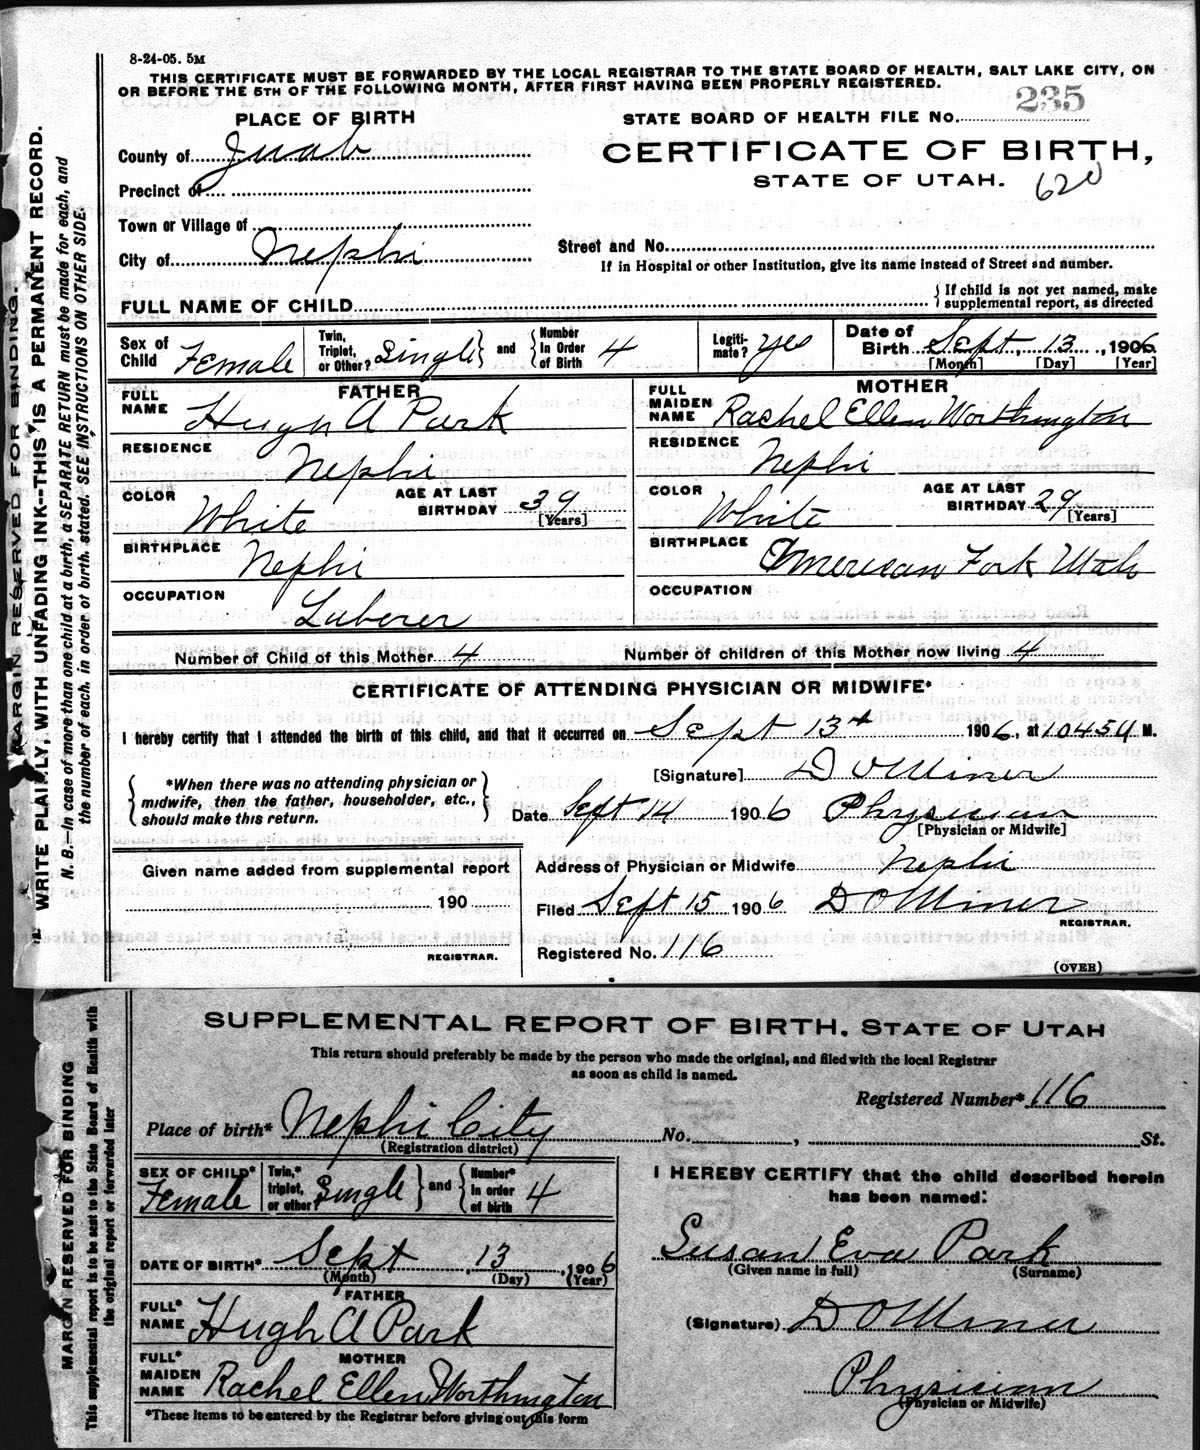 8-24-05. 5M
THIS CERTIFICATE MUST BE FORWARDED BY THE LOCAL REGISTRAR TO THE STATE BOARD OF HEALTH, SALT LAKE CITY, ON
OR BEFORE THE 5TH OF THE FOLLOWING MONTH, AFTER FIRST HAVING BEEN PROPERLY REGISTERED.
PLACE OF BIRTH
STATE BOARD OF HEALTH FILE No. 235
County of Juab
CERTIFICATE OF BIRTH,
STATE OF UTAH. 620
Precinct of
Town or Village of
City of Nephi
Street and No.
If in Hospital or other Institution, give its name instead of Street and number.
FULL NAME OF CHILD { If child is not yet named, make supplemental report, as directed
Sex of Child Female Twin, Triplet, or Other? Single } and { Number In Order of Birth 4 Legiti-mate? Yes Date of Birth Sept, 13, 1906
[Month] [Day] [Year]
FATHER
FULL NAME Hugh A Park
RESIDENCE Nephi
COLOR White AGE AT LAST BIRTHDAY 39 [Years]
BIRTHPLACE Nephi
OCCUPATION Laborer
MOTHER
FULL MAIDEN NAME Rachel Ellen Worthington
RESIDENCE Nephi
COLOR White AGE AT LAST BIRTHDAY 29 [Years]
BIRTHPLACE American Fork Utah
OCCUPATION
Number of Child of this Mother 4 Number of children of this Mother now living 4
CERTIFICATE OF ATTENDING PHYSICIAN OR MIDWIFE*
I hereby certify that I attended the birth of this child, and that it occurred on Sept 13th 1906, at M.
*When there was no attending physician or
midwife, then the father, householder, etc.,
should make this return.
[Signature] D O Miner
Date Sept 14 1906 Physician
[Physician or Midwife]
Given name added from supplemental report
190
REGISTRAR.
Address of Physician or Midwife Nephi
Filed Sept 15 1906 D O Miner
REGISTRAR.
Registered No. 116
(OVER)
MARGIN RESERVED FOR BINDING.
WRITE PLAINLY, WITH UNFADING INK--THIS IS A PERMANENT RECORD.
N. B.—In case of more than one child at a birth, a SEPARATE RETURN must be made for each, and
the number of each, in order of birth, stated. SEE INSTRUCTIONS ON OTHER SIDE.
SUPPLEMENTAL REPORT OF BIRTH, STATE OF UTAH
This return should preferably be made by the person who made the original, and filed with the local Registrar
as soon as child is named.
Registered Number* 116
Place of birth* Nephi City No. , St.
(Registration district)
SEX OF CHILD* Female Twin,* triplet, or other? Single } and { Number* in order of birth 4
DATE OF BIRTH* Sept, 13, 1906
(Month) (Day) (Year)
FATHER
FULL* NAME Hugh A Park
MOTHER
FULL* MAIDEN NAME Rachel Ellen Worthington
*These items to be entered by the Registrar before giving out this form
I HEREBY CERTIFY that the child described herein
has been named:
Susan Eva Park
(Given name in full) (Surname)
(Signature) D O Miner
Physician
(Physician or Midwife)
MARGIN RESERVED FOR BINDING
This supplemental report is to be sent to the State Board of Health with
the original report or forwarded later